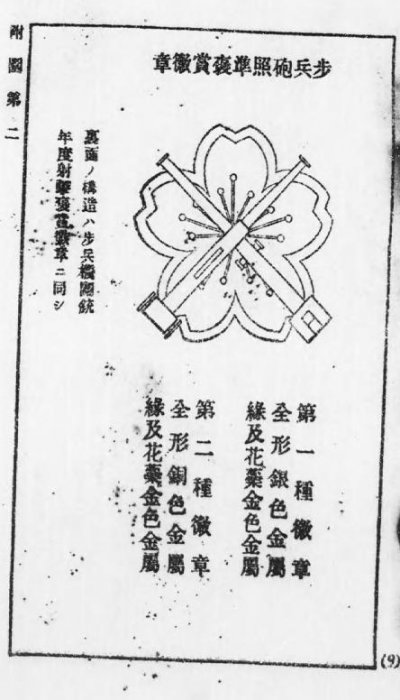 步兵砲照準褒賞徽章
第一種徽章
全形銀色金屬
緣及花蘂金色金屬
第二種徽章
全形銅色金屬
緣及花蘂金色金屬
裏面ノ構造ハ步兵機關銃
年度射擊褒賞徽章ニ同シ
附圖第二
(9)